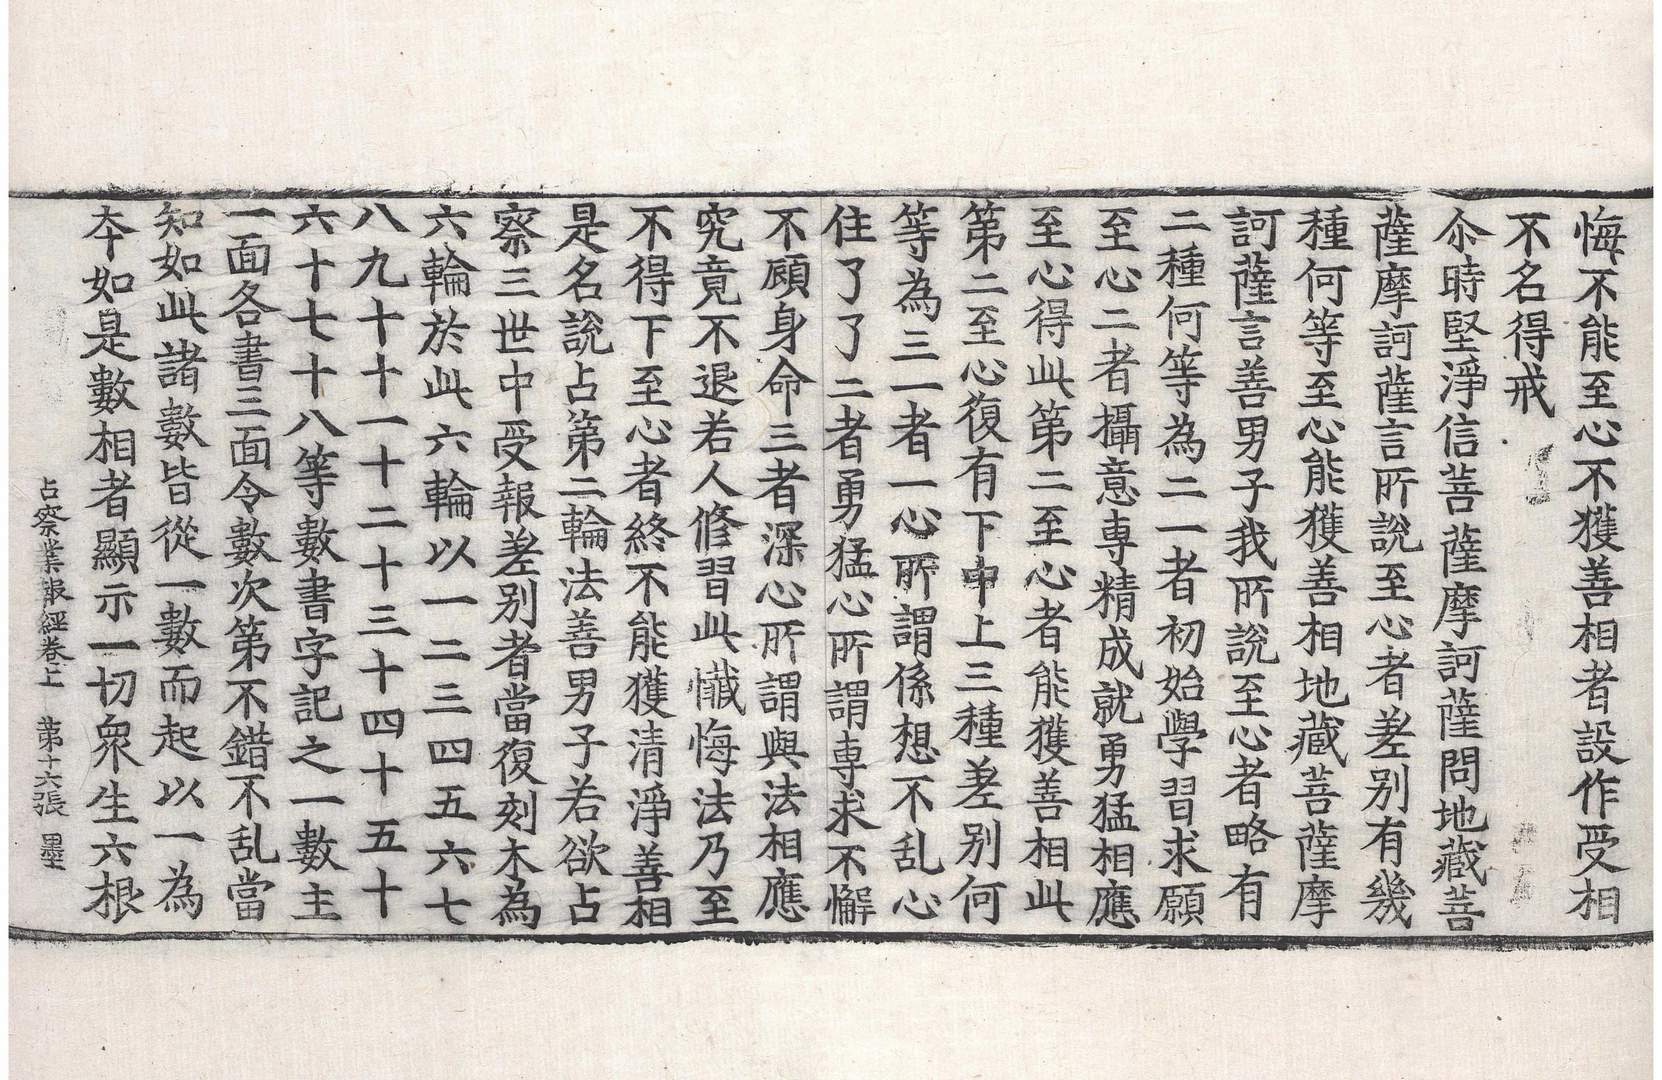 悔不能至心不獲善相者設作受相
不名得戒
尒時堅淨信菩薩摩訶薩問地藏菩
薩摩訶薩言所說至心者差別有幾
種何等至心能獲善相地藏菩薩摩
訶薩言善男子我所說至心者略有
二種何等為二一者初始學習求願
至心二者攝意專精成就勇猛相應
至心得此第二至心者能獲善相此
第二至心復有下中上三種差別何
等為三一者一心所謂係想不乱心
住了了二者勇猛心所謂專求不懈
不顧身命三者深心所謂與法相應
究竟不退若人修習此懺悔法乃至
不得下至心者終不能獲清淨善相
是名說占第二輪法善男子若欲占
察三世中受報差別者當復刻木為
六輪於此六輪以一二三四五六七
八九十十一十二十三十四十五十
六十七十八等數書字記之一數主
一面各書三面令數次第不錯不乱當
知如此諸數皆從一數而起以一為
夲如是數相者顯示一切衆生六根
占察業報經卷上 第十六張 墨